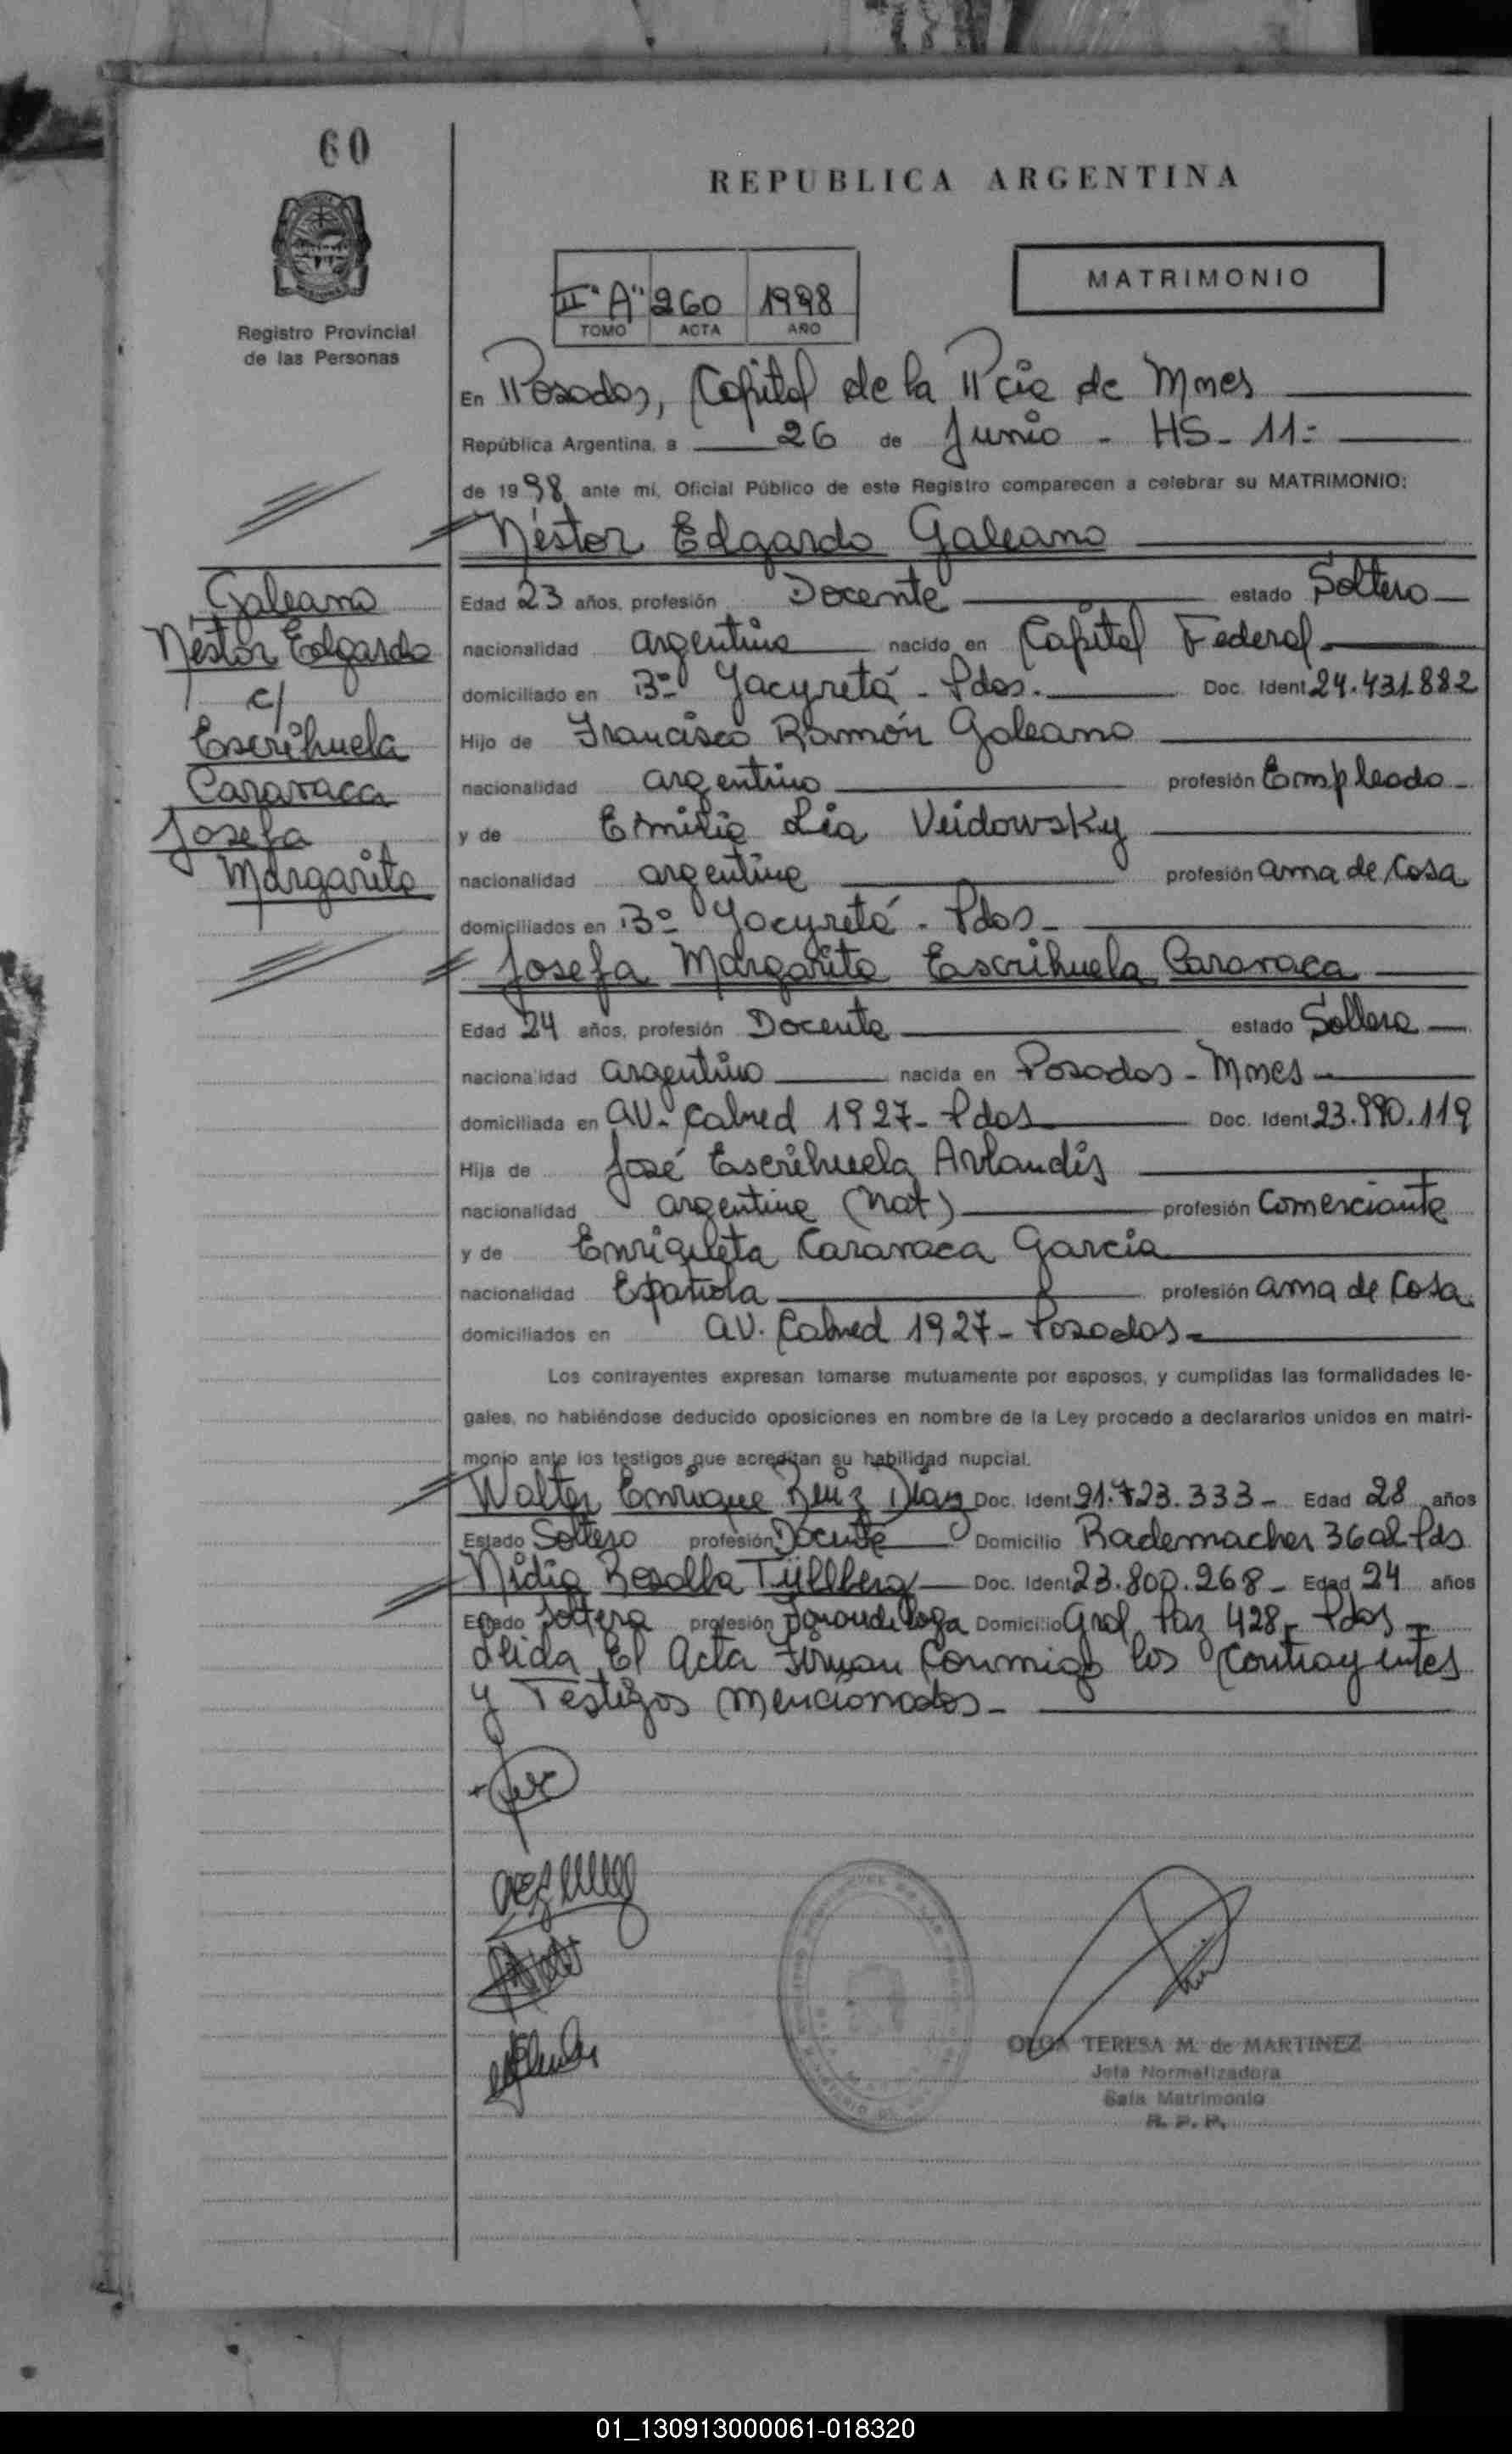 60
REPUBLICA ARGENTINA
MATRIMONIO
II "A" 260 1998
TOMO ACTA AÑO
Registro Provincial
de las Personas
En Posadas, Capital de la Pcia de Mnes
República Argentina, a 26 de Junio - HS- 11:
de 1998 ante mi, Oficial Público de este Registro comparecen a celebrar su MATRIMONIO:
Néstor Edgardo Galeano
Galeano
Néstor Edgardo
c/
Escrihuela
Caravaca
Josefa
Margarita
Edad 23 años, profesión Docente estado Soltero
nacionalidad argentino nacido en Capital Federal
domiciliado en Bº Yacyretá - Pdas. Doc. Ident 24.431.882
Hijo de Francisco Ramón Galeano
nacionalidad argentino profesión Empleado
y de Emilia Lia Veidowsky
nacionalidad argentina profesión ama de Casa
domiciliados en Bº Yacyretá - Pdas -
Josefa Margarita Escrihuela Caravaca
Edad 24 años, profesión Docente estado Soltera
nacionalidad argentino nacida en Posadas - Mnes
domiciliada en AV. Cabred 1927 - Pdas Doc. Ident 23.990.119
Hija de José Escrihuela Arlandis
nacionalidad argentina (Nat) profesión Comerciante
y de Enriqueta Caravaca García
nacionalidad Española profesión ama de Casa.
domiciliados en AV. Cabred 1927 - Posadas -
Los contrayentes expresan tomarse mutuamente por esposos, y cumplidas las formalidades le-
gales, no habiéndose deducido oposiciones en nombre de la Ley procedo a declararlos unidos en matri-
monio ante los testigos que acreditan su habilidad nupcial.
Walter Enrique Ruiz Diaz Doc. Ident 91.723.333 - Edad 28 años
Estado Soltero profesión Docente Domicilio Rademacher 3602 Pds
Nidia Rosalba Tüllberg Doc. Ident 23.800.268 - Edad 24 años
Estado Soltera profesión Domicilio Gral Paz 428 - Pdas
Leida El Acta Firman Conmigo los Contrayentes
y Testigos mencionados -
OLGA TERESA M. de MARTINEZ
Jefa Normalizadora
Sala Matrimonio
R. P. P.
01_130913000061-018320